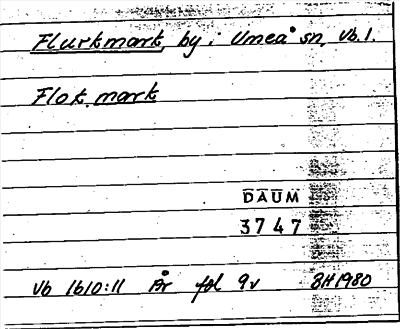 Flurkmark, by i Umeå sn, Vb. l.
Flok.mark
DAUM
3747
Vb 1610:11 År fol 9v BH 1980